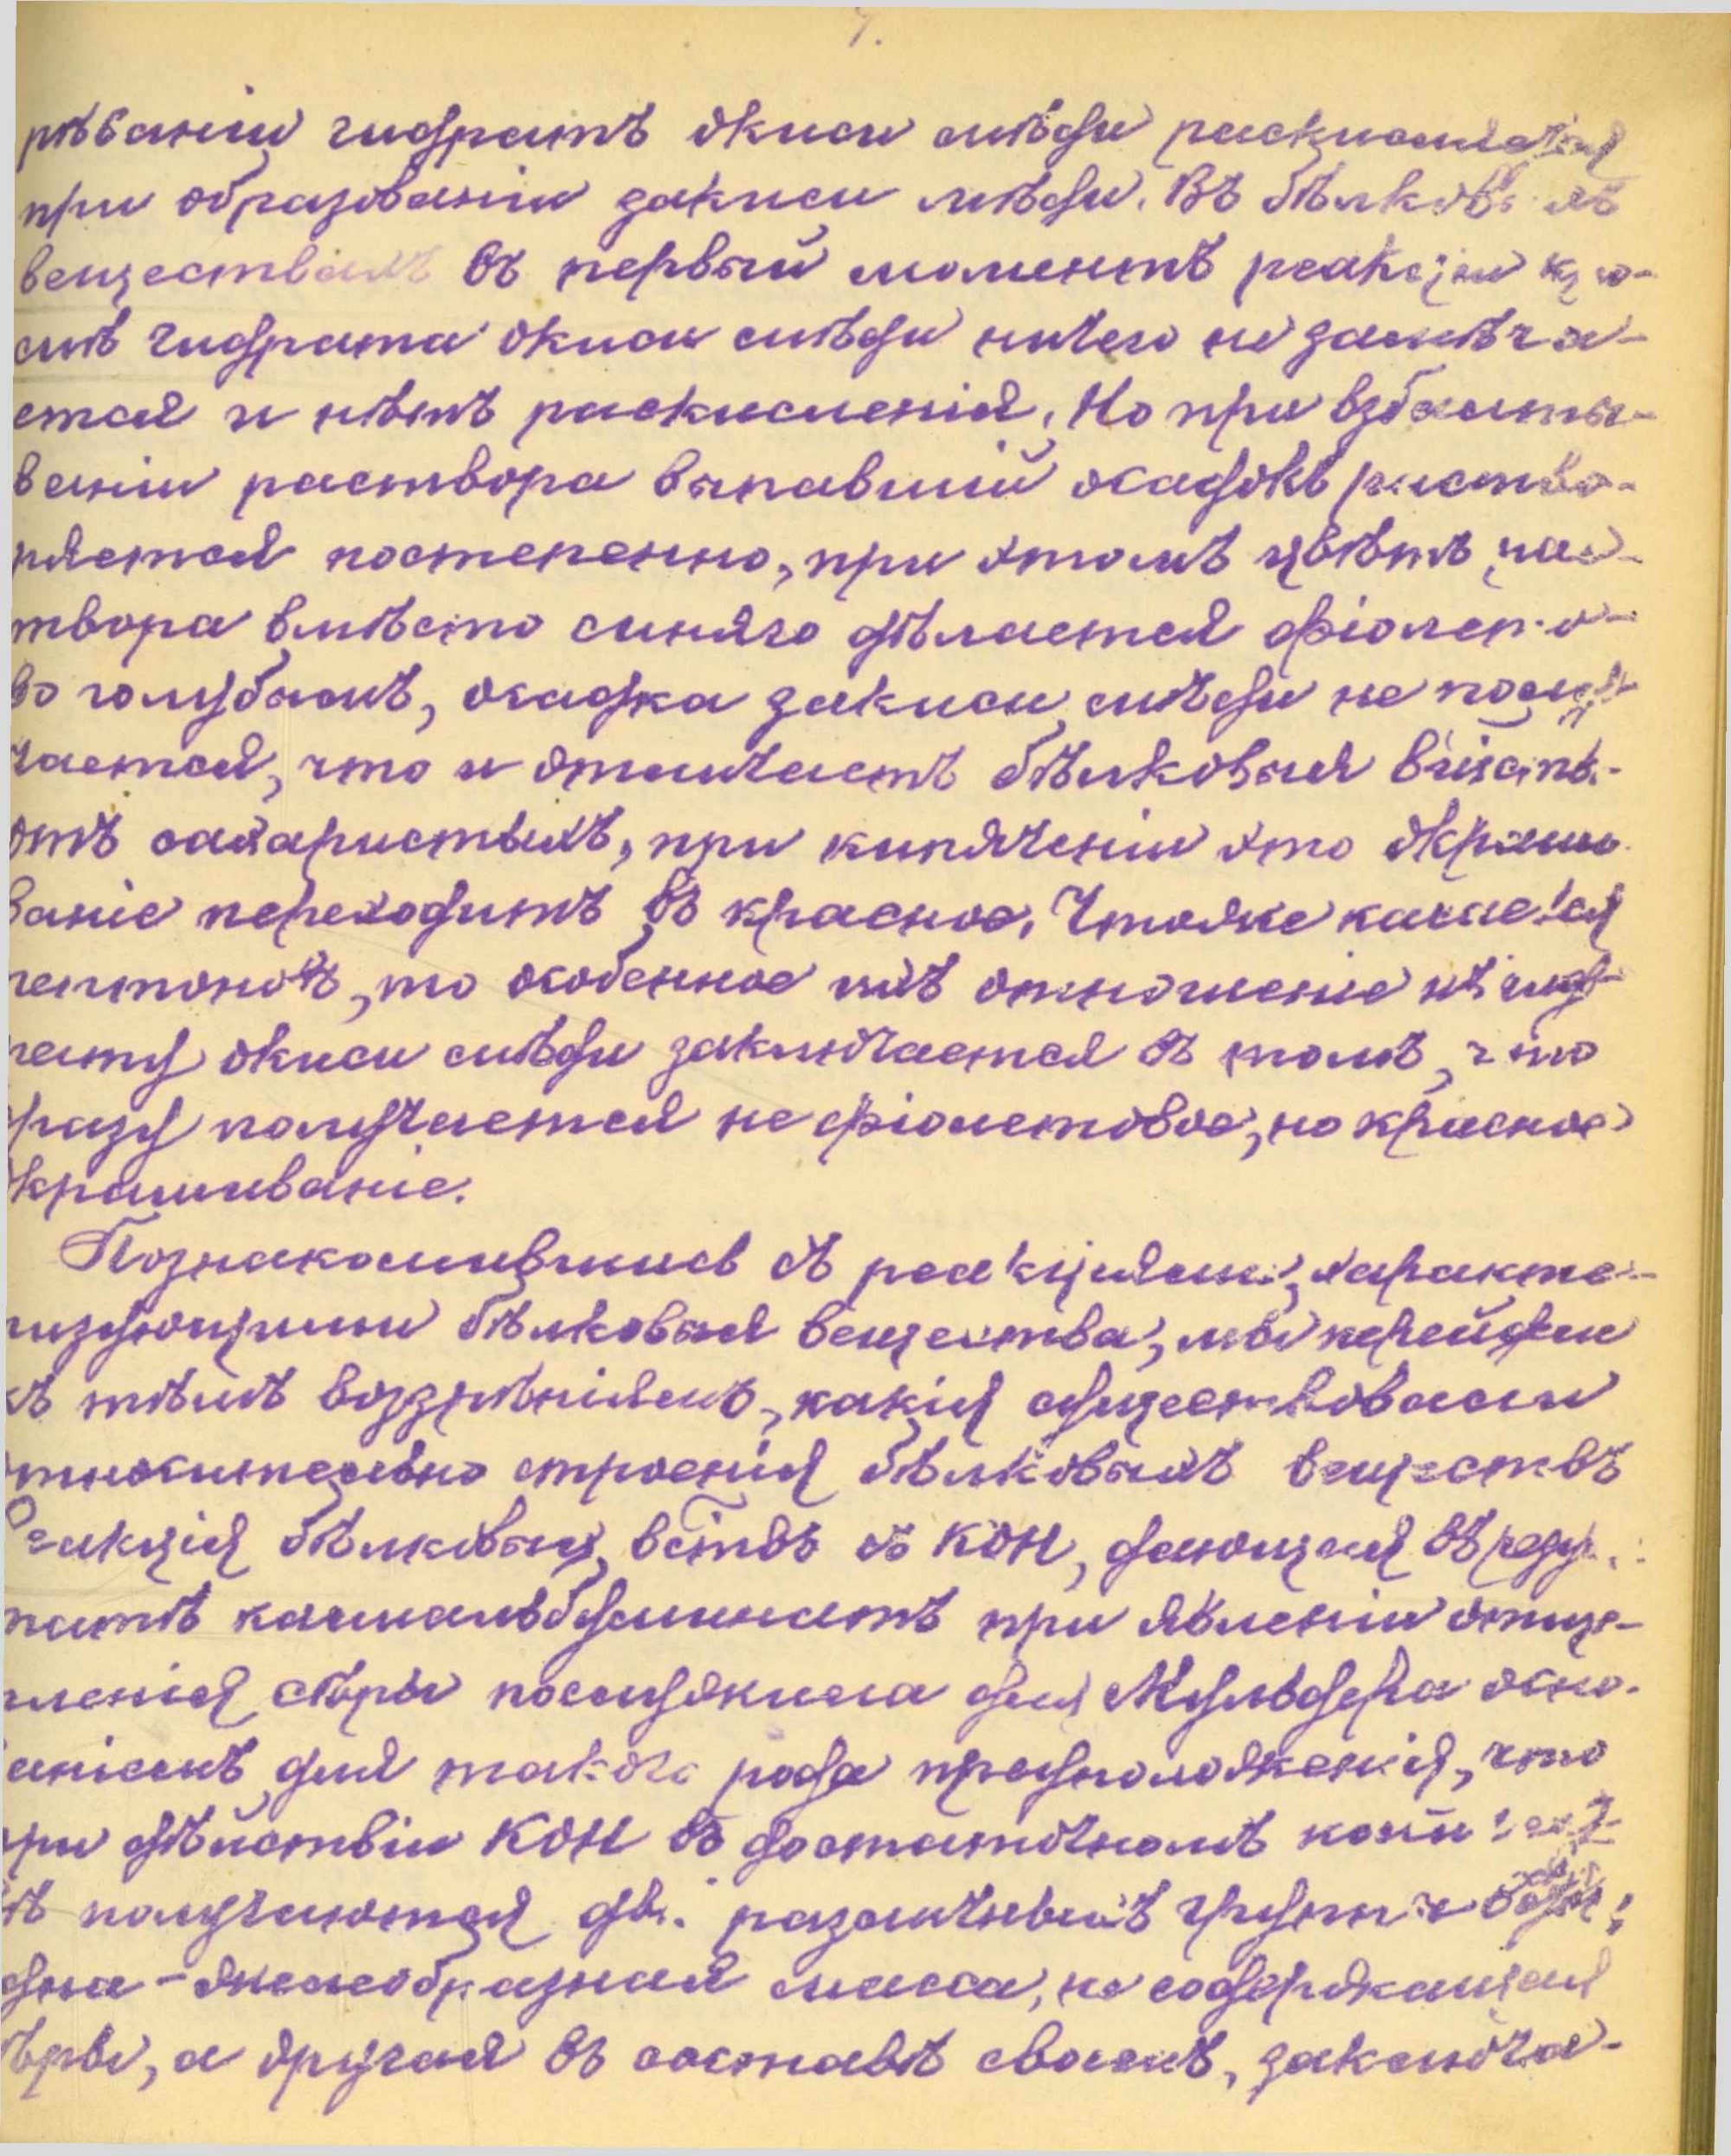 7.
рѣваніи гидратъ окиси мѣди раскисляется
при образованіи закиси мѣди. Въ бѣлковыхъ
веществахъ въ первый моментъ реакціи кро-
мѣ гидрата окиси мѣди ничего не замѣча-
ется и нѣтъ раскисленія. Но при взбалты-
ваніи раствора выпавшій осадокъ раство-
ряется постепенно, при этомъ цвѣтъ рас-
твора вмѣсто синяго дѣлается фіолето-
во голубымъ, осадка закиси мѣди не полу-
чается, что и отличаетъ бѣлковыя
отъ сахаристыхъ, при кипяченіи это окраши
ваніе переходитъ въ красное. Чтоже касается
пептоновъ, то особенное ихъ отношеніе къ гид-
рату окиси мѣди заключается въ томъ, что
сразу получается не фіолетовое, но красное
окрашиваніе.
Познакомившись съ реакціями, характе-
ризующими бѣлковыя вещества, мы перейдем
къ тѣмъ воззрѣніямъ, какія существовали
относительно строенія бѣлковыхъ веществъ
Реакція бѣлковыхъ съ KOH, дающая въ резу
татѣ калиальбуминатъ при явленіи отще-
пленія сѣры послужила для Мульдера осно-
ваніемъ для такого рода предположенія, что
при дѣйствіи KOH въ достаточномъ
получаются двѣ различныхъ группы
одна - желеобразная масса, не содержащая
сѣры, а другая въ составѣ своемъ, заключа-